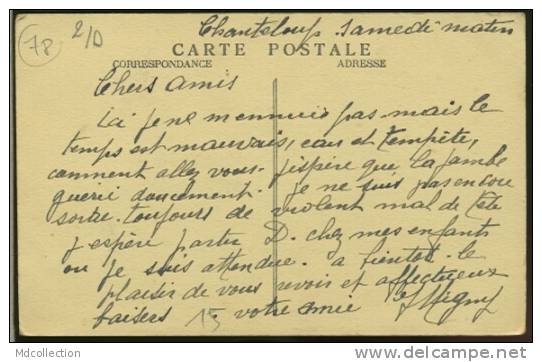 78
2/D
Chanteloup Samedi matin
CARTE POSTALE
CORRESPONDANCE
ADRESSE
Chers amis
Ici je ne m'ennuie pas mais le
temps est mauvais, eau et tempête,
comment allez vous. j'espère que la jambe
guerie doucement. je ne suis pas encore
sortie. toujours de violent mal de tête
j'espère partir D. chez mes enfants
ou je suis attendue. a bientot le
plaisir de vous revoir et affectueux
baisers. votre amie
15
MDcollection
www.delcampe.net